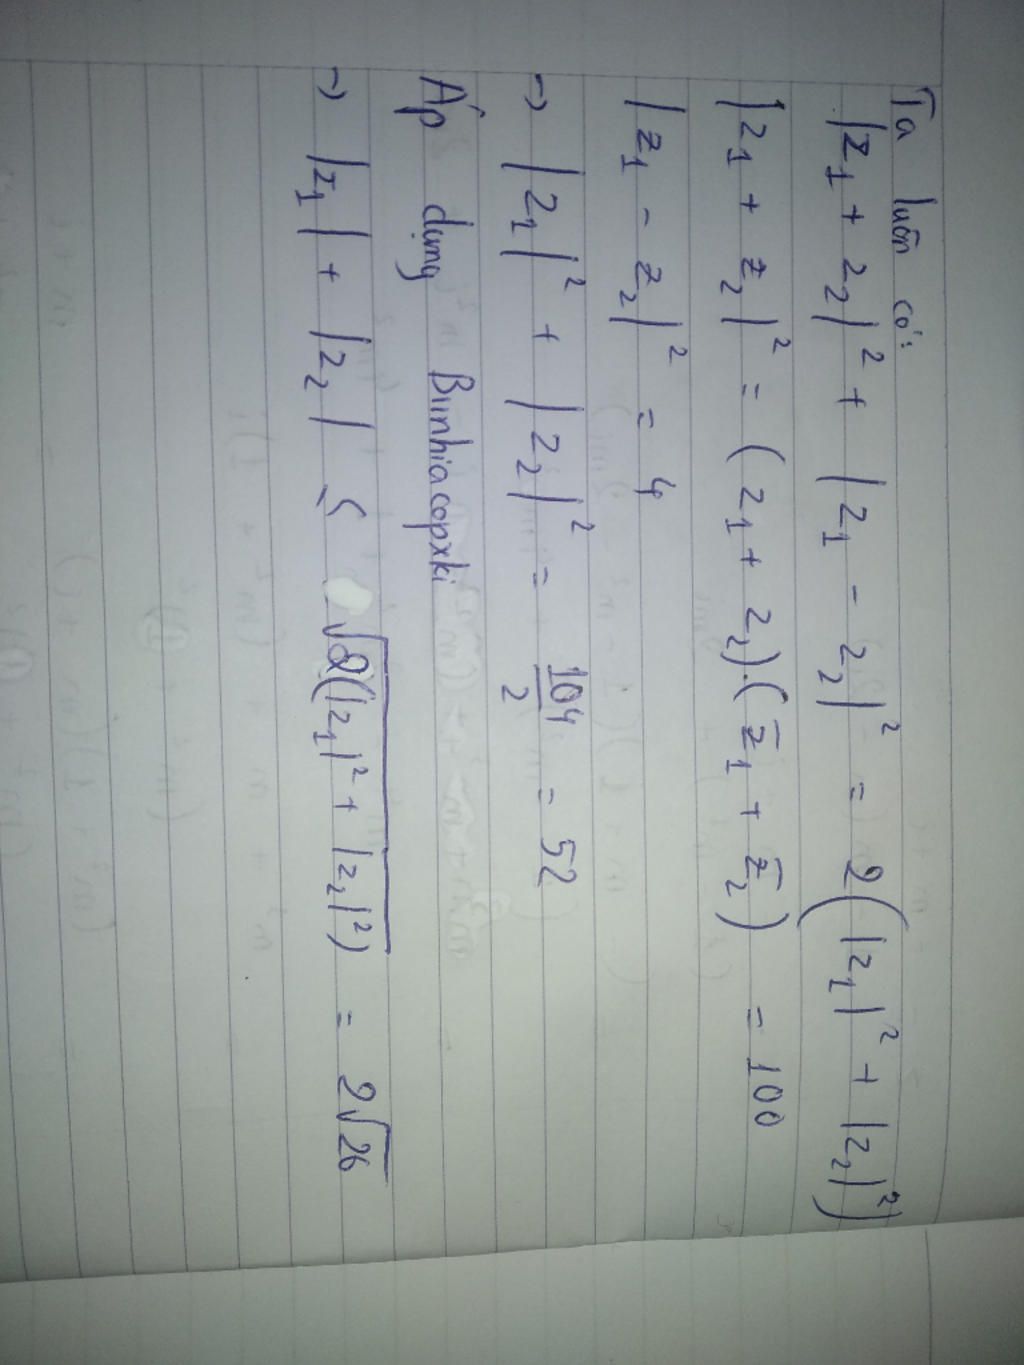 Ta luôn có:
|z₁ + z₂|² + |z₁ - z₂|² = 2(|z₁|² + |z₂|²)
|z₁ + z₂|² = (z₁ + z₂).(z̄₁ + z̄₂) = 100
|z₁ - z₂|² = 4
→ |z₁|² + |z₂|² = 104/2 = 52
Áp dụng Bunhiacopxki
→ |z₁| + |z₂| ≤ √(2(|z₁|² + |z₂|²)) = 2√26